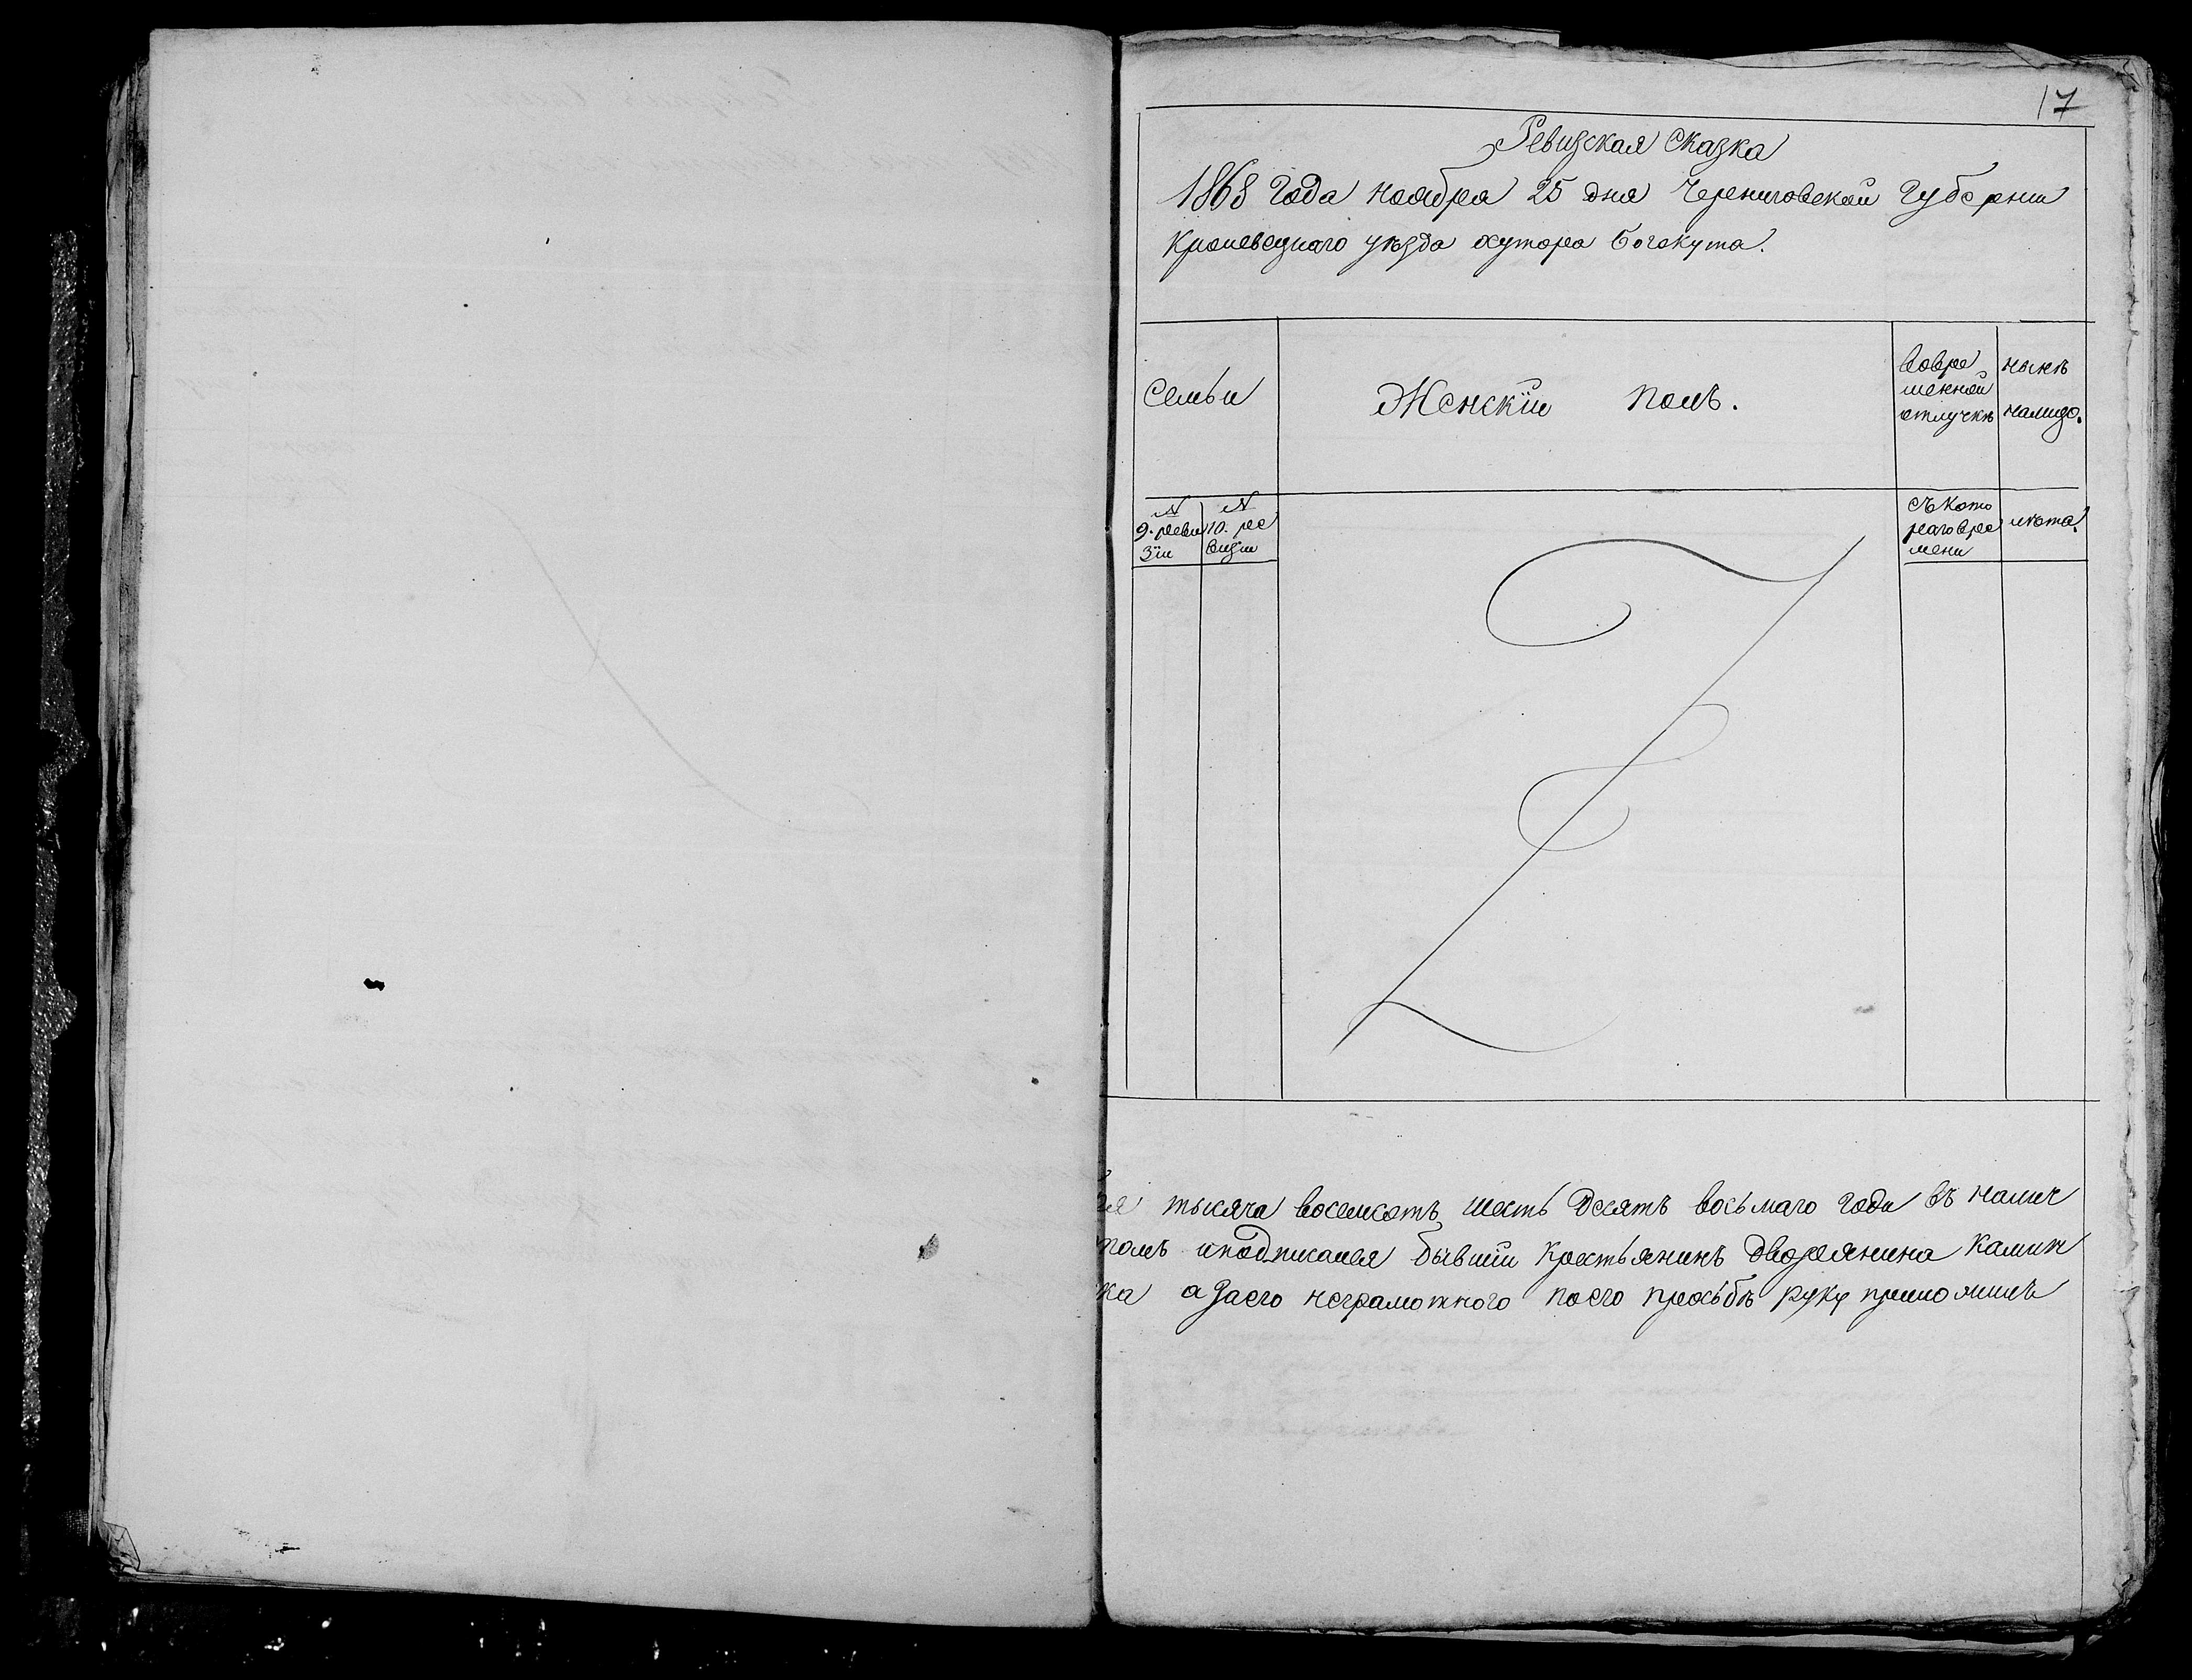 17
Ревизская Сказка
1868 Года ноября 25 дня Черниговской Губернии
Кролевецкаго уѣзда хутора Богокута.
Семьи
Женскій полъ.
вовре
менной
отлучкѣ
нынѣ
налицо.
N
9. реви
зіи
N
10. ре
визіи
съ кото
раго вре
мени
лѣта.
тысяча восемсотъ шесть десятъ восьмаго года въ налич
полъ иподписался бывши Крестьянинъ дворянина
ка а заего неграмотного поего прозьбѣ руку приложилъ